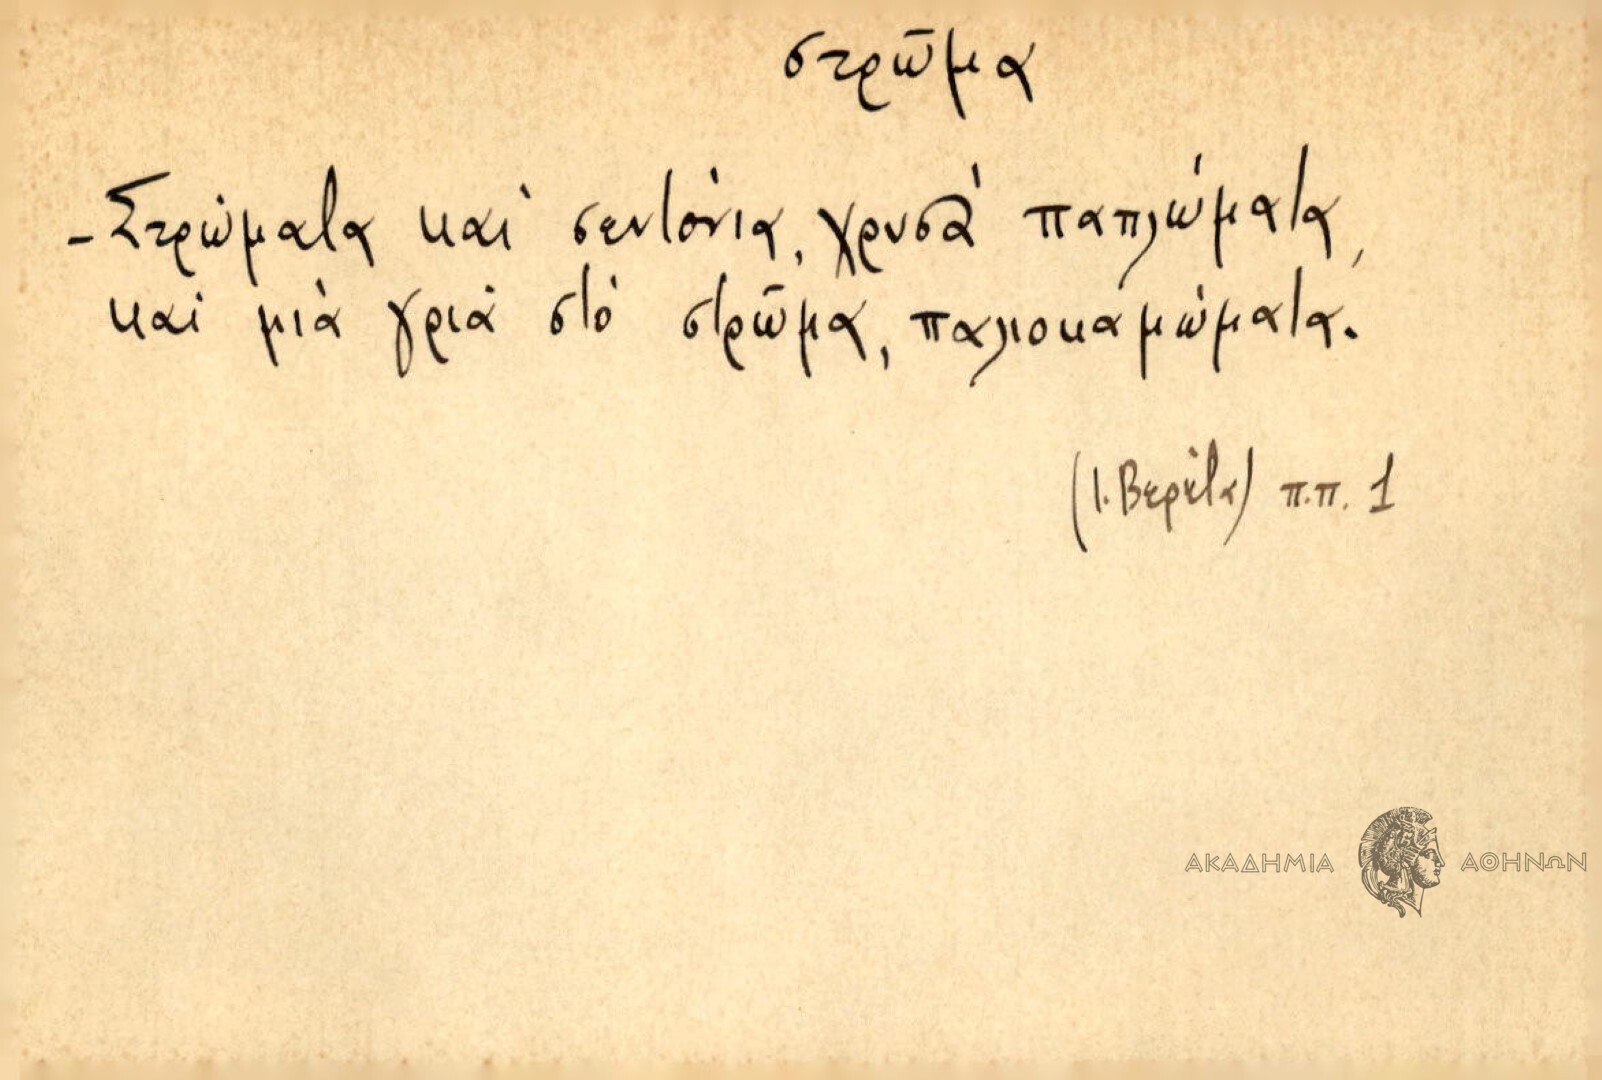 στρῶμα
- Στρώματα καὶ σεντόνια, χρυσὰ παπλώματα,
καὶ μιὰ γριὰ στὸ στρῶμα, παλιοκαμώματα.
(Ι. Βερέτα) π.π. 1
ΑΚΑΔΗΜΙΑ ΑΘΗΝΩΝ